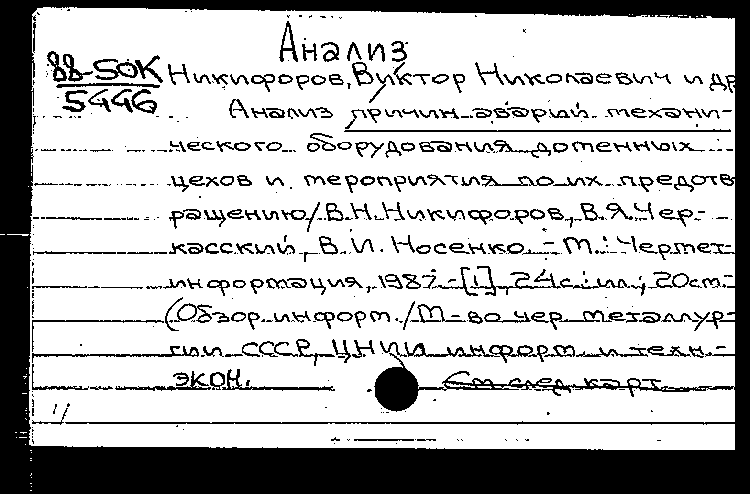 Анализ
88-50К
5446
Никифоров, Виктор Николаевич и др
Анализ причин аварий механи-
ческого оборудования доменных
цехов и мероприятия по их предотв
ращению/В.Н.Никифоров, В.Я.Чер-
касский, В.И. Носенко. - М.: Чермет-
информация, 1987. - [1], 24с.: ил.; 20см.-
(Обзор. информ. /М-во чер. металлур-
гии СССР, ЦНИИ информ. и техн.-
экон.
См след карт
1/